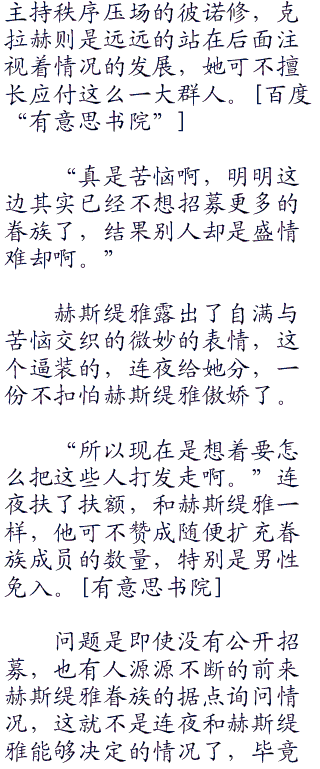 主持秩序压场的彼诺修，克
拉赫则是远远的站在后面注
视着情况的发展，她可不擅
长应付这么一大群人。[百度
“有意思书院”]
“真是苦恼啊，明明这
边其实已经不想招募更多的
眷族了，结果别人却是盛情
难却啊。”
赫斯缇雅露出了自满与
苦恼交织的微妙的表情，这
个逼装的，连夜给她分，一
份不扣怕赫斯缇雅傲娇了。
“所以现在是想着要怎
么把这些人打发走啊。”连
夜扶了扶额，和赫斯缇雅一
样，他可不赞成随便扩充眷
族成员的数量，特别是男性
免入。[有意思书院]
问题是即使没有公开招
募，也有人源源不断的前来
赫斯缇雅眷族的据点询问情
况，这就不是连夜和赫斯缇
雅能够决定的情况了，毕竟